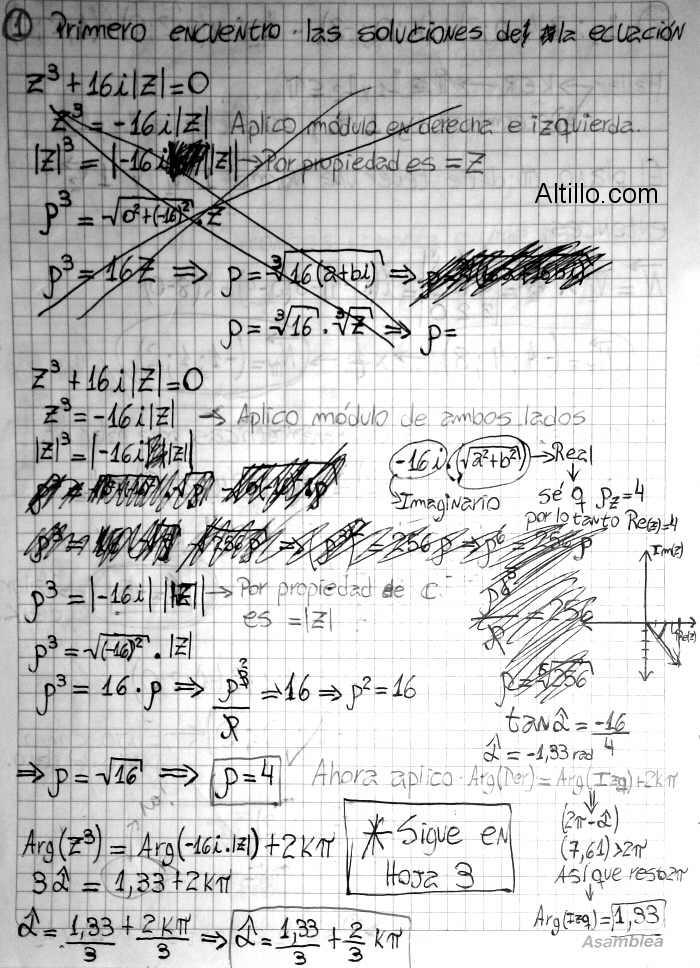 ① Primero encuentro las soluciones de la ecuación
z³ + 16i|z| = 0
z³ = -16i|z| Aplico módulo en derecha e izquierda.
|z|³ = |-16i ||z|| → Por propiedad es = z
Altillo.com
ρ³ = √(0²+(-16)²) . z
ρ³ = 16z ⇒ ρ = ∛(16(a+bi)) ⇒
ρ = ∛16 . ∛z ⇒ ρ =
z³ + 16i|z| = 0
z³ = -16i|z| → Aplico módulo de ambos lados
|z|³ = |-16i |z||
-16i . √(a²+b²) → Real
→ Imaginario
sé q ρz = 4
por lo tanto Re(z)=4
ρ³ = |-16i| ||z|| → Por propiedad de C
es = |z|
Im(z)
Re(z)
ρ³ = √(-16)² . |z|
ρ³ = 16 . ρ ⇒ ρ³/ρ = 16 ⇒ ρ² = 16
tan α̂ = -16/4
α̂ = -1,33 rad
⇒ ρ = √16 ⇒ ρ = 4
Ahora aplico Arg(Der) = Arg(Izq) + 2kπ
(2π - α̂)
(7,61) > 2π
Así que resto 2π
Arg(Izq) = 1,33
Arg(z³) = Arg(-16i.|z|) + 2kπ
* Sigue en
Hoja 3
3α̂ = 1,33 + 2kπ
α̂ = 1,33/3 + 2kπ/3 ⇒ α̂ = 1,33/3 + 2/3 kπ
Asamblea